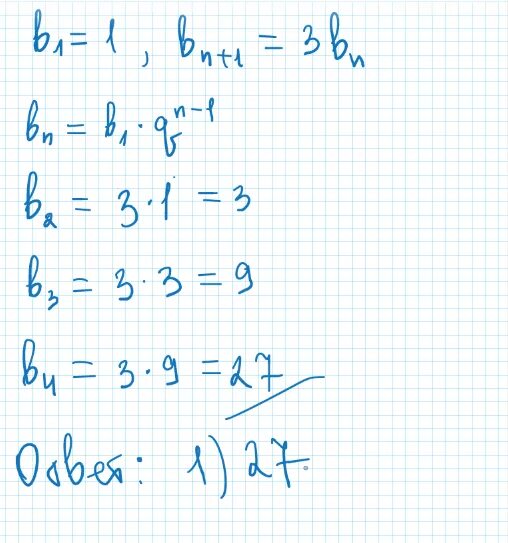 b₁ = 1 , bₙ₊₁ = 3bₙ
bₙ = b₁ · qⁿ⁻¹
b₂ = 3 · 1 = 3
b₃ = 3 · 3 = 9
b₄ = 3 · 9 = 27
Ответ: 1) 27